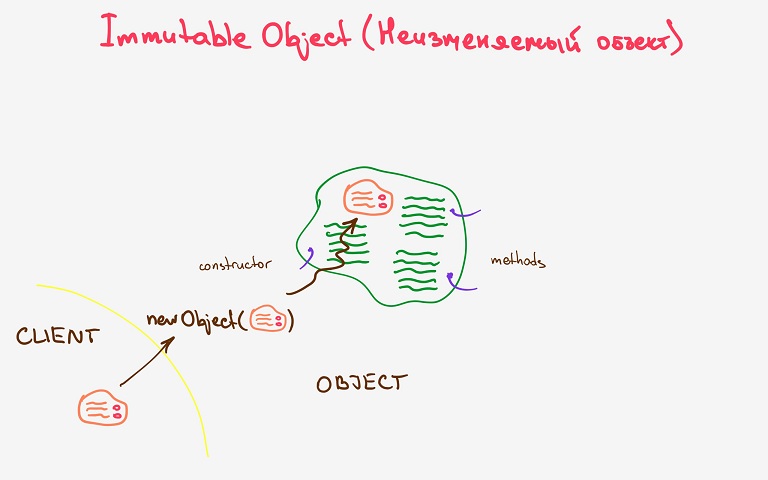 Immutable Object (Неизменяемый объект)
constructor
methods
new Object( )
CLIENT
OBJECT